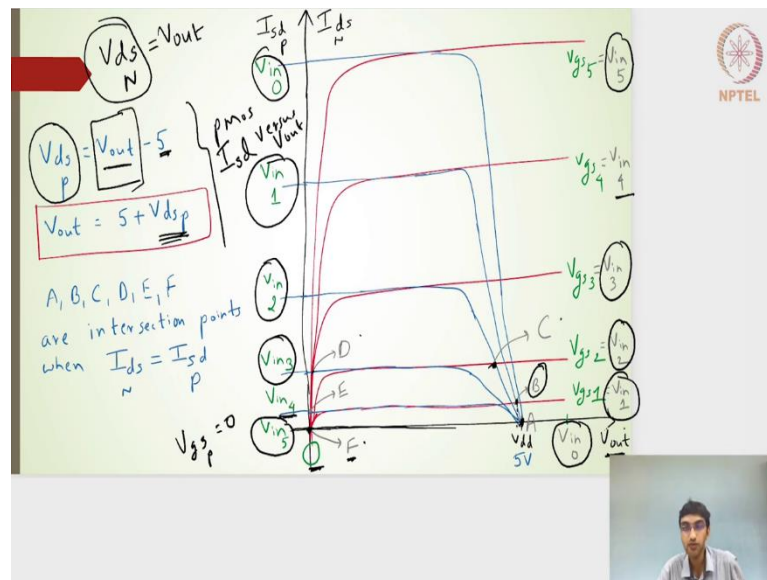 Vds N = Vout
Vds p = Vout - 5
Vout = 5 + Vds p
pmos
Isd versus Vout
A, B, C, D, E, F
are intersection points
when Ids N = Isd p
Isd p
Ids N
Vin 0
Vin 1
Vin 2
Vin3
Vin4
Vin5
Vgs p = 0
0
Vgs5 = Vin 5
Vgs4 = Vin 4
Vgs3 = Vin 3
Vgs2 = Vin 2
Vgs1 = Vin 1
D
E
F
C
B
A
Vdd
5V
Vin 0
Vout
NPTEL